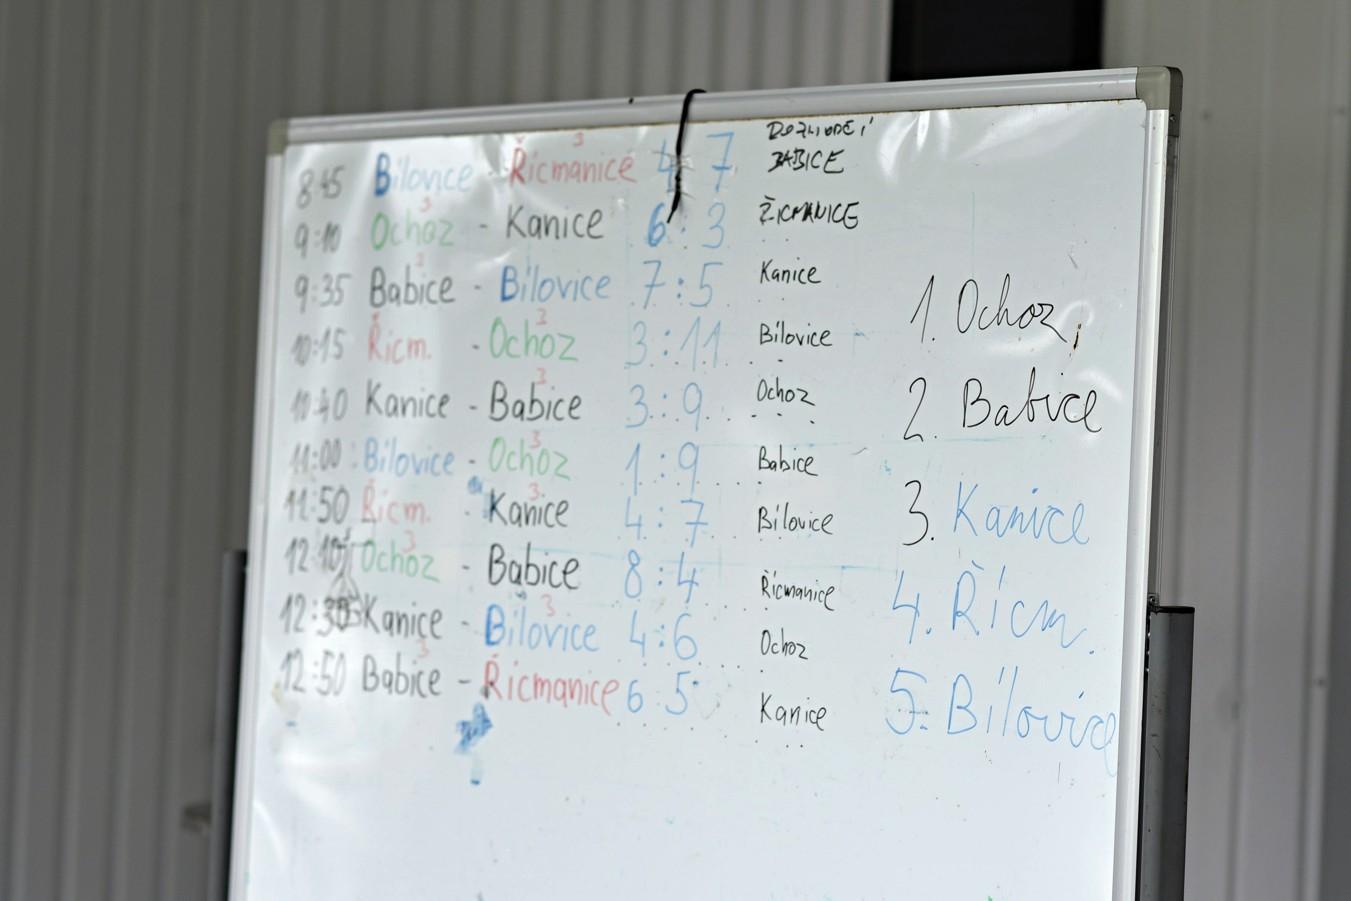 DOZHODČÍ
8:45 Bílovice - Řicmanice 3 4 : 7 BABICE
9:10 Ochoz 3 - Kanice 6 : 3 ŘICMANICE
9:35 Babice 3 - Bílovice 7 : 5 Kanice
10:15 Řicm. - Ochoz 3 3 : 11 Bílovice
10:40 Kanice - Babice 3 3 : 9 Ochoz
11:00 Bílovice - Ochoz 3 1 : 9 Babice
11:50 Řicm. - Kanice 3 4 : 7 Bílovice
12:10 Ochoz 3 - Babice 8 : 4 Řicmanice
12:35 Kanice - Bílovice 3 4 : 6 Ochoz
12:50 Babice 3 - Řicmanice 6 5 Kanice
1. Ochoz
2. Babice
3. Kanice
4. Řícm.
5. Bílovice